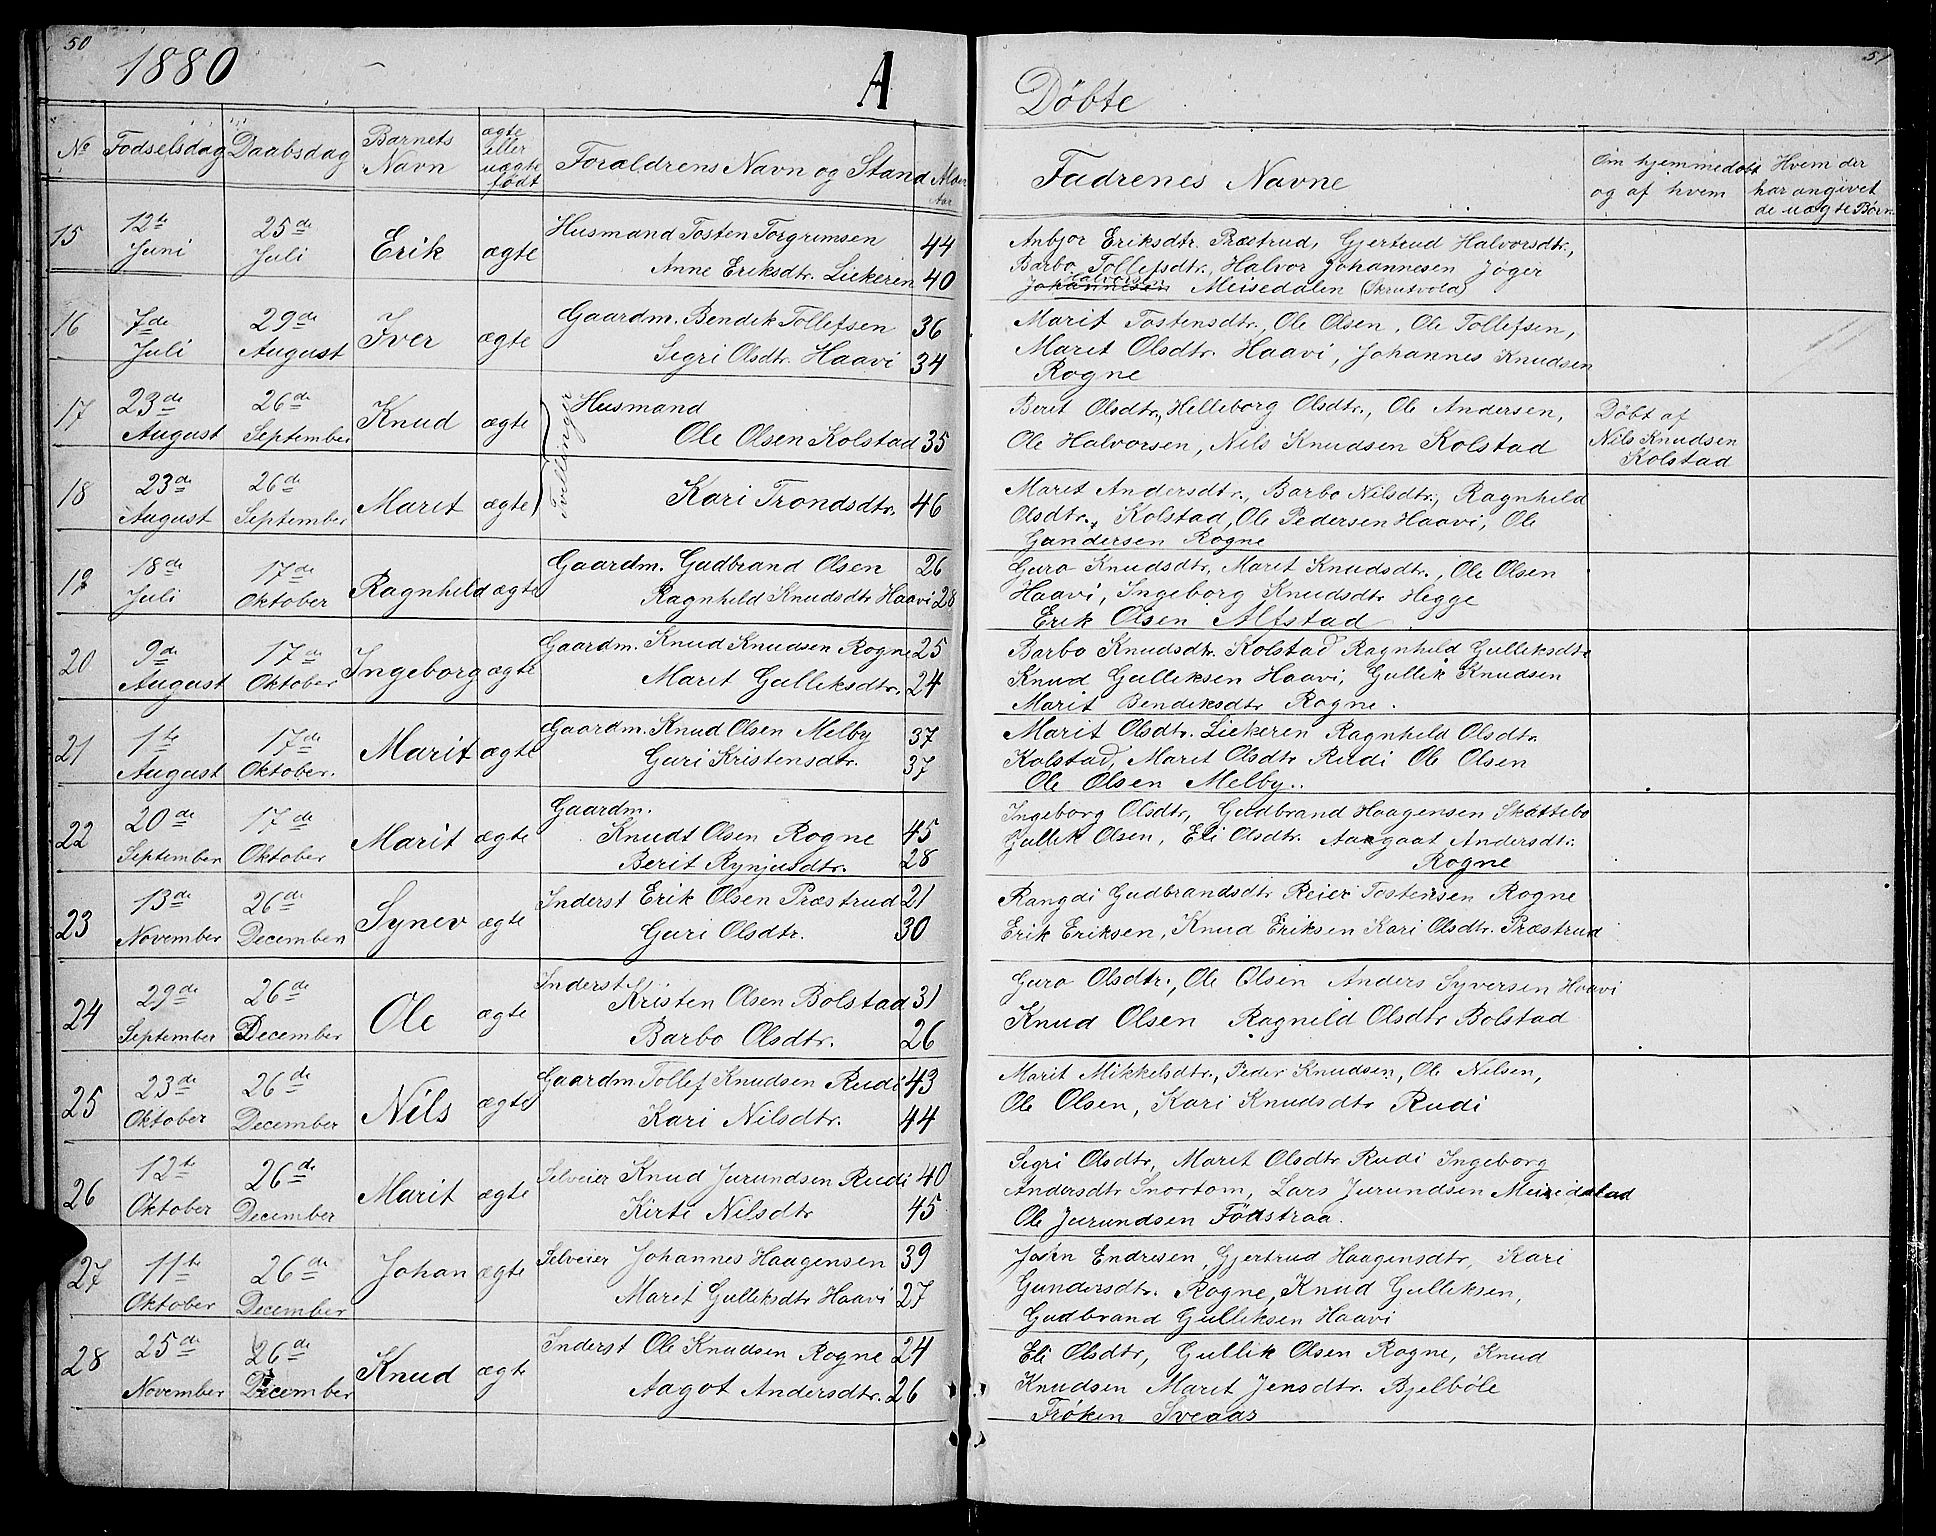 50
1880
A
Døbte
51
No Fødselsdag Daabsdag Barnets Navn ægte eller uægte født Forældrenes Navn og Stand Alder Aar
Fadrenes Navne
Om hjemmedøbt og af hvem
Hvem der har angivet de uægte Børn
15 12te Juni 25de Juli Erik ægte Husmand Tosten Torgrimsen 44
Anne Eriksdtr. Liekeren 40
Anbjor Eriksdtr. Præstrud, Gjertrud Halvorsdtr.,
Barbo Tollefsdtr., Halvor Johannesen Jøger
Halvorsen
Johannesen Meisedalen (Skrutvold)
16 7de Juli 29de August Iver ægte Gaardm. Bendik Tollefsen 36
Segri Olsdtr. Haavi 34
Marit Tostensdtr., Ole Olsen, Ole Tollefsen,
Maret Olsdtr. Haavi, Johannes Knudsen
Rogne
17 23de August 26de September Knud ægte Tvillinger Husmand
Ole Olsen Kolstad 35
Berit Olsdtr., Helleborg Olsdtr., Ole Andersen,
Ole Halvorsen, Nils Knudsen Kolstad
Døbt af
Nils Knudsen
Kolstad
18 23de August 26de September Maret ægte Kari Trondsdtr. 46
Maret Andersdtr., Barbo Nilsdtr., Ragnhild
Olsdtr., Kolstad, Ole Pedersen Haavi, Ole
Gundersen Rogne
19 18de Juli 17de Oktober Ragnhild ægte Gaardm. Gudbrand Olsen 26
Ragnhild Knudsdtr Haavi 28
Guro Knudsdtr, Maret Knudsdtr., Ole Olsen
Haavi, Ingeborg Knudsdtr Hegge
Erik Olsen Alfstad
20 9de August 17de Oktober Ingeborg ægte Gaardm. Knud Knudsen Rogne 25
Marit Gulliksdtr. 24
Barbo Knudsdtr. Kolstad Ragnhild Gulliksdtr
Knud Gulliksen Haavi, Gullik Knudsen
Marit Bendiksdtr Rogne.
21 1te August 17de Oktober. Marit ægte Gaardm. Knud Olsen Melby 37
Guri Kristensdtr. 37
Marit Olsdtr. Liekeren Ragnhild Olsdtr.
Kolstad, Maret Olsdtr Rudi Ole Olsen
Ole Olsen Melby..
22 20de September 17de Oktober Marit ægte Gaardm.
Knudt Olsen Rogne 45
Berit Rynjusdtr. 28
Ingeborg Olsdtr, Guldbrand Haagensen Skattebo
Gullik Olsen, Eli Olsdtr. Aargaat Andersdtr.
Rogne
23 13de November 26de December Synev ægte Inderst Erik Olsen Præstrud 21
Guri Olsdtr. 30
Rangdi Gudbrandsdtr Reier Tostensen Rogne
Erik Eriksen, Knud Eriksen Kari Olsdtr. Præstrud
24 29de September 26de December Ole ægte Inderst
Kristen Olsen Bolstad 31
Barbo Olsdtr. 26
Guro Olsdtr., Ole Olsen Anders Syversen Haavi
Knud Olsen Ragnild Olsdtr Bolstad
25 23de Oktober 26de December Nils ægte Gaardm Tollef Knudsen Rudi 43
Kari Nilsdtr. 44
Marit Mikkelsdtr., Peder Knudsen, Ole Nilsen,
Ole Olsen, Kari Knudsdtr Rudi
26 12te Oktober 26de December Marit ægte Selveier Knud Jurundsen Rudi 40
Kirti Nilsdtr 45
Segri Olsdtr, Maret Olsdtr Rudi Ingeborg
Andersdtr Snortom, Lars Jurundsen
Ole Jurundsen Fødstraa.
27 11te Oktober 26de December Johan ægte Selveier Johannes Haagensen 39
Maret Gulliksdtr Haavi 27
Jørn Endresen, Gjertrud Haagensdtr, Kari
Gundersdtr. Rogne, Knud Gulliksen,
Gudbrand Gulliksen Haavi
28 25de November 26de December Knud ægte Inderst Ole Knudsen Rogne 24
Aagot Andersdtr. 26
Eli Olsdtr, Gullik Olsen Rogne, Knud
Knudsen Maret Jensdtr. Bjelbøle
Frøken Sveaas